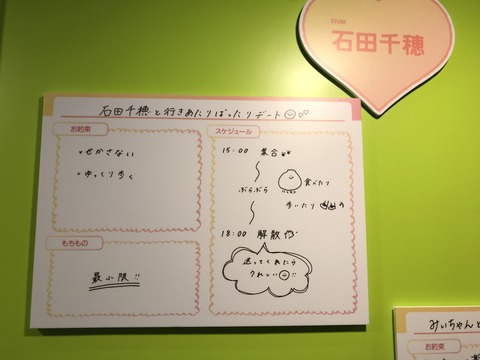 STU48
石田千穂
石田千穂と行きあたりばったりデート
お約束
・せかさない
・ゆっくり歩く
もちもの
最小限!!
スケジュール
15:00 集合
ぶらぶら
食べたり
歩いたり
18:00 解散
送ってくれたら
うれしい!!
みぃちゃんと
お約束